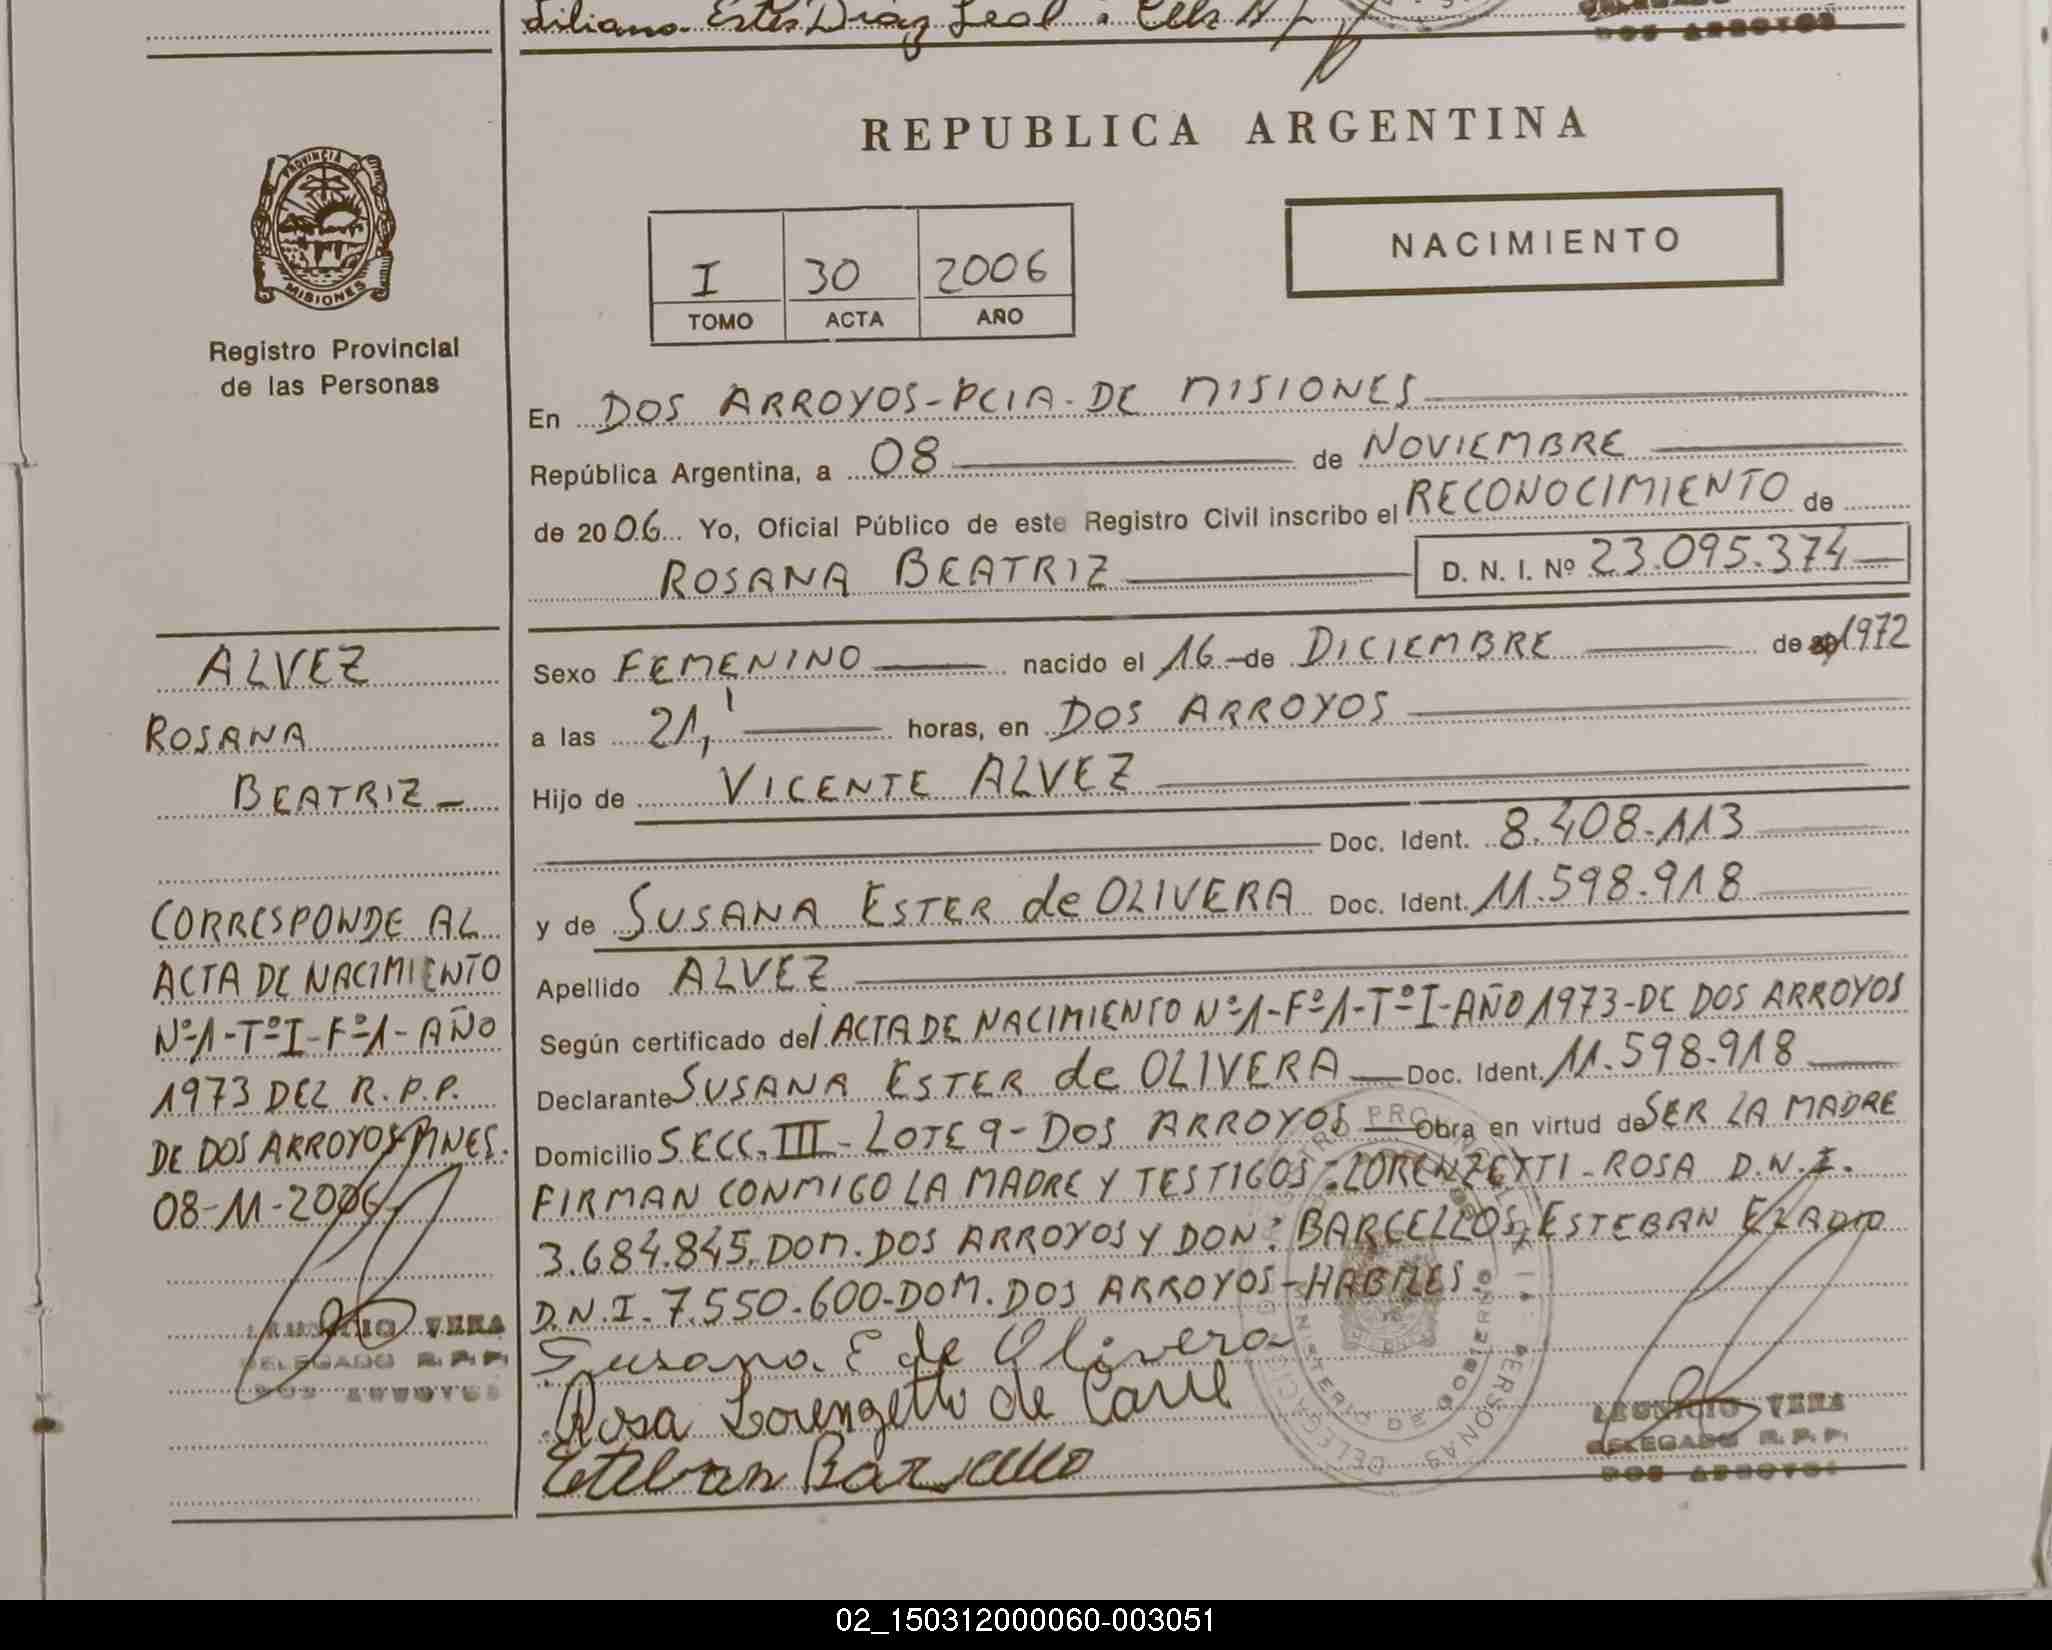 Liliana Ester Diaz Leal
DOS ARROYOS
REPUBLICA ARGENTINA
PROVINCIA DE
MISIONES
Registro Provincial
de las Personas
I 30 2006
TOMO ACTA AÑO
NACIMIENTO
En DOS ARROYOS-PCIA-DE MISIONES
República Argentina, a 08 de NOVIEMBRE
de 2006 Yo, Oficial Público de este Registro Civil inscribo el RECONOCIMIENTO de
ROSANA BEATRIZ D. N. I. Nº 23.095.374
Sexo FEMENINO nacido el 16 de DICIEMBRE de 1972
a las 21, horas, en DOS ARROYOS
Hijo de VICENTE ALVEZ
Doc. Ident. 8.408.113
y de SUSANA ESTER de OLIVERA Doc. Ident. 11.598.918
Apellido ALVEZ
Según certificado del ACTA DE NACIMIENTO Nº1-Fº1-TºI-AÑO 1973-DE DOS ARROYOS
Declarante SUSANA ESTER de OLIVERA Doc. Ident. 11.598.918
Domicilio SECC. III - LOTE 9 - DOS ARROYOS Obra en virtud de SER LA MADRE
FIRMAN CONMIGO LA MADRE Y TESTIGOS: LORENZETTI - ROSA D.N.I.
3.684.845. DOM. DOS ARROYOS Y DON: BARCELLOS, ESTEBAN ELADIO
D.N.I. 7.550.600-DOM. DOS ARROYOS-HABILES.
Susana E de Olivera
Rosa Lorenzetti de
Esteban
LEUNICIO VERA
DELEGADO R.P.P.
DOS ARROYOS
ALVEZ
ROSANA
BEATRIZ
CORRESPONDE AL
ACTA DE NACIMIENTO
Nº1-TºI-Fº1-AÑO
1973 DEL R.P.P.
DE DOS ARROYOS MNES.
08-11-2006
LEUNICIO VERA
DELEGADO R.P.P.
DOS ARROYOS
MINISTERIO DE GOBIERNO
02_150312000060-003051